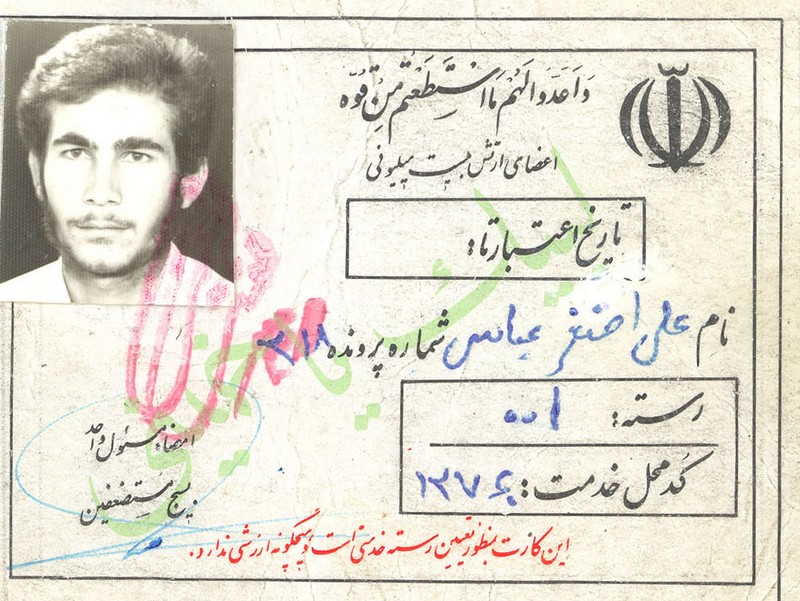 وَاَعِدّوا لَهُم مَا اسْتَطَعْتُم مِنْ قُوَّه
اعضای ارتش بیست میلیونی
تاریخ اعتبار تا:
نام علی اصغر عباسی شماره پرونده ۳۱۸
رسته: ۱۰۰
کد محل خدمت: ۱۳۷۶
امضاء مسئول واحد
بسیج مستضعفین
این کارت بمنظور تعیین رسته خدمتی است و هیچگونه ارزشی ندارد.